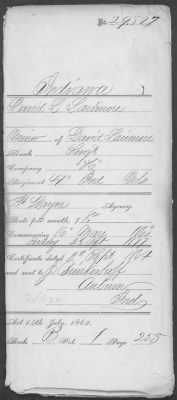 No 29,527
Indiana
David L Larimore
Minor of David Larimore
Rank Serg't
Company
Regiment 47" Ind Vols
Ft Wayne Agency.
Rate per month, $8 00
Commencing 16" May 1863
Ending 1877
Certificate dated 1864
and sent to J Brinkerhoff
Auburn
Ind
Act 14th July, 1862.
Book B Vol. 1 Page 255